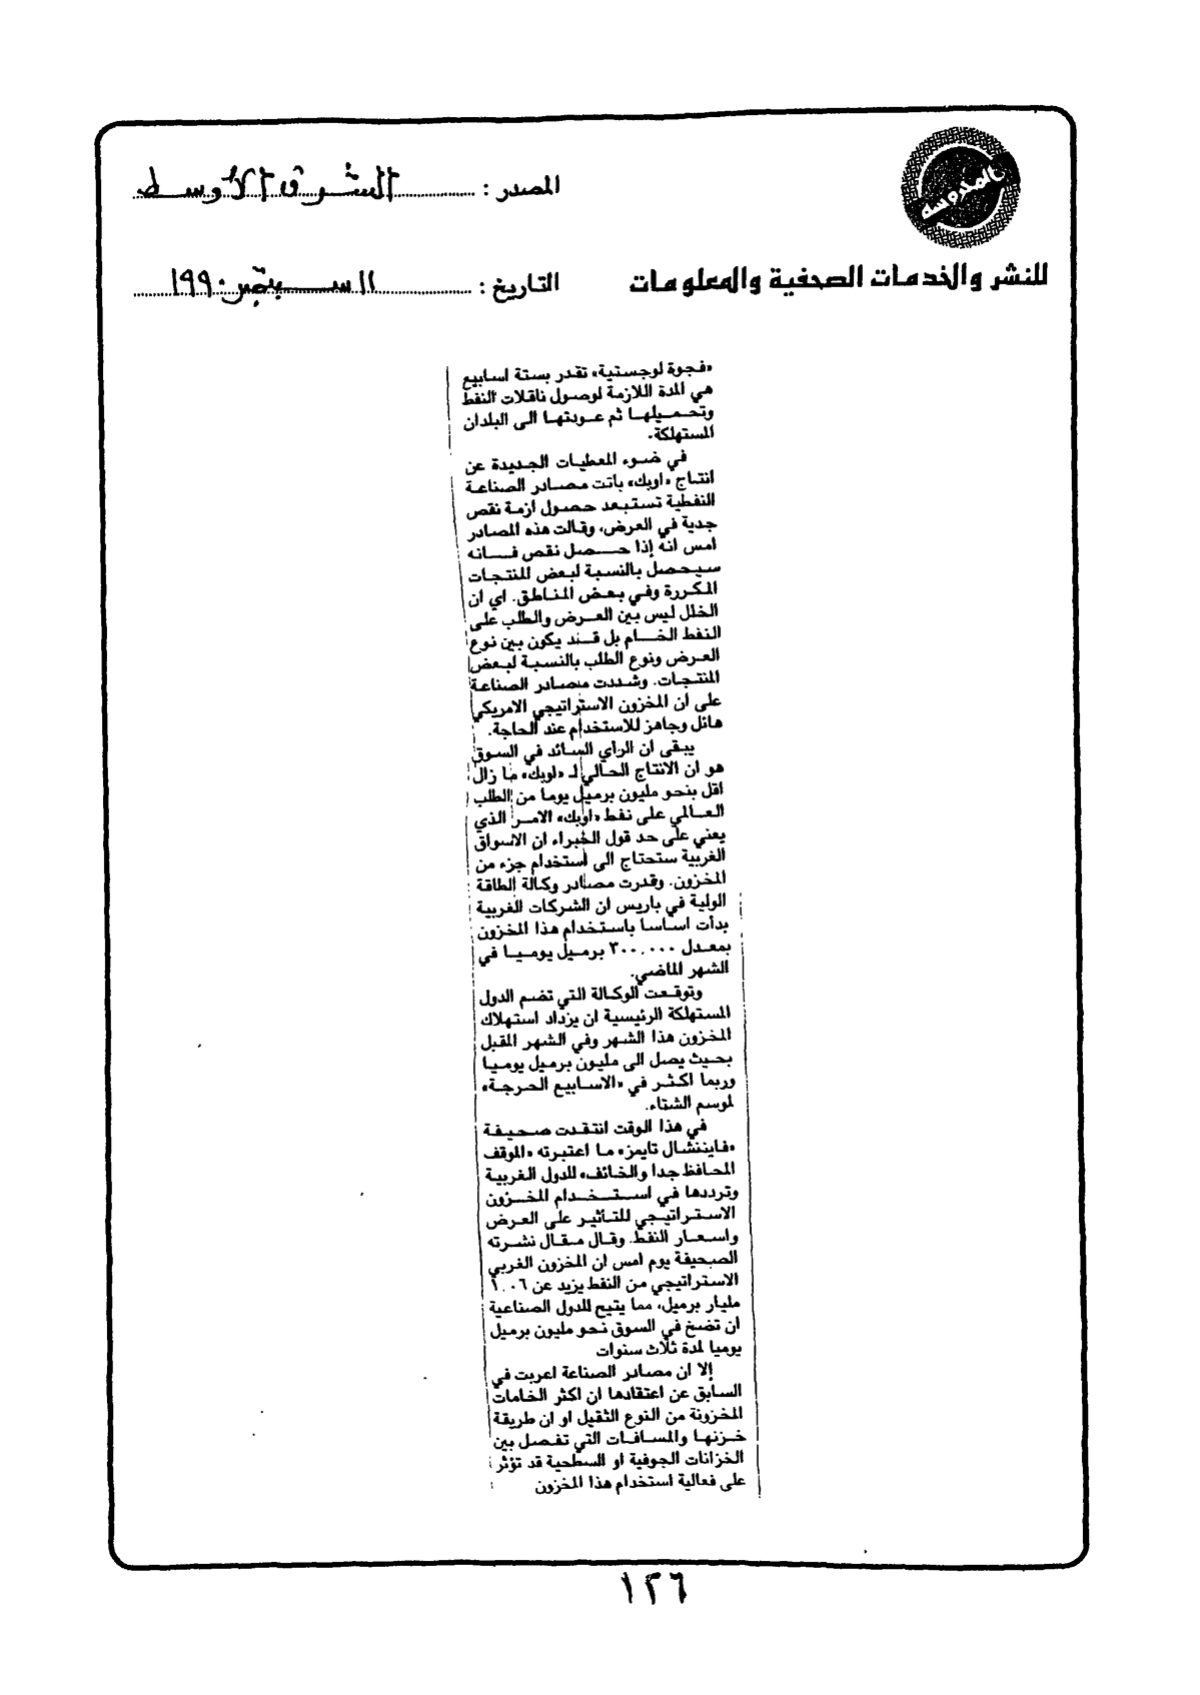 المصدر : الشرق الأوسط
للنشر والخدمات الصحفية والمعلومات
التاريخ : ١١ سبتمبر ١٩٩٠
«فجوة لوجستية» تقدر بستة اسابيع
هي المدة اللازمة لوصول ناقلات النفط
وتحميلها ثم عودتها الى البلدان
المستهلكة.
في ضوء المعطيات الجديدة عن
انتاج «اوبك» باتت مصادر الصناعة
النفطية تستبعد حصول ازمة نقص
جدية في العرض، وقالت هذه المصادر
امس انه إذا حصل نقص فانه
سيحصل بالنسبة لبعض المنتجات
المكررة وفي بعض المناطق. اي ان
الخلل ليس بين العرض والطلب على
النفط الخام بل قد يكون بين نوع
العرض ونوع الطلب بالنسبة لبعض
المنتجات. وشددت مصادر الصناعة
على ان المخزون الاستراتيجي الامريكي
هائل وجاهز للاستخدام عند الحاجة.
يبقى ان الراي السائد في السوق
هو ان الانتاج الحالي لـ «اوبك» ما زال
اقل بنحو مليون برميل يوما من الطلب
العالمي على نفط «اوبك» الامر الذي
يعني على حد قول الخبراء ان الاسواق
الغربية ستحتاج الى استخدام جزء من
المخزون. وقدرت مصادر وكالة الطاقة
الولية في باريس ان الشركات الغربية
بدأت اساسا باستخدام هذا المخزون
بمعدل ٣٠٠,٠٠٠ برميل يوميا في
الشهر الماضي.
وتوقعت الوكالة التي تضم الدول
المستهلكة الرئيسية ان يزداد استهلاك
المخزون هذا الشهر وفي الشهر المقبل
بحيث يصل الى مليون برميل يوميا
وربما اكثر في «الاسابيع الحرجة»
لموسم الشتاء.
في هذا الوقت انتقدت صحيفة
«فايننشال تايمز» ما اعتبرته «الموقف
المحافظ جدا والخائف» للدول الغربية
وترددها في استخدام المخزون
الاستراتيجي للتأثير على العرض
واسعار النفط. وقال مقال نشرته
الصحيفة يوم امس ان المخزون الغربي
الاستراتيجي من النفط يزيد عن ١,٠٦
مليار برميل، مما يتيح للدول الصناعية
ان تضخ في السوق نحو مليون برميل
يوميا لمدة ثلاث سنوات
إلا ان مصادر الصناعة اعربت في
السابق عن اعتقادها ان اكثر الخامات
المخزونة من النوع الثقيل او ان طريقة
خزنها والمسافات التي تفصل بين
الخزانات الجوفية او السطحية قد تؤثر
على فعالية استخدام هذا المخزون
١٢٦